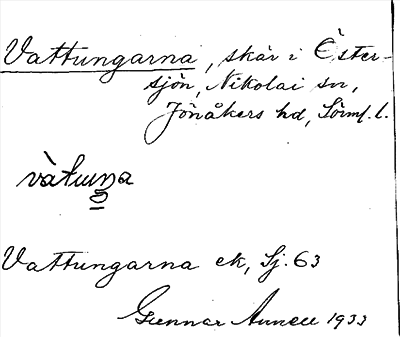 Vattungarna, skär i Öster-
sjön, Nikolai sn,
Jönåkers hd, Sörml. l.
Vattungarna ek, Sj. 63
Gunnar 1933